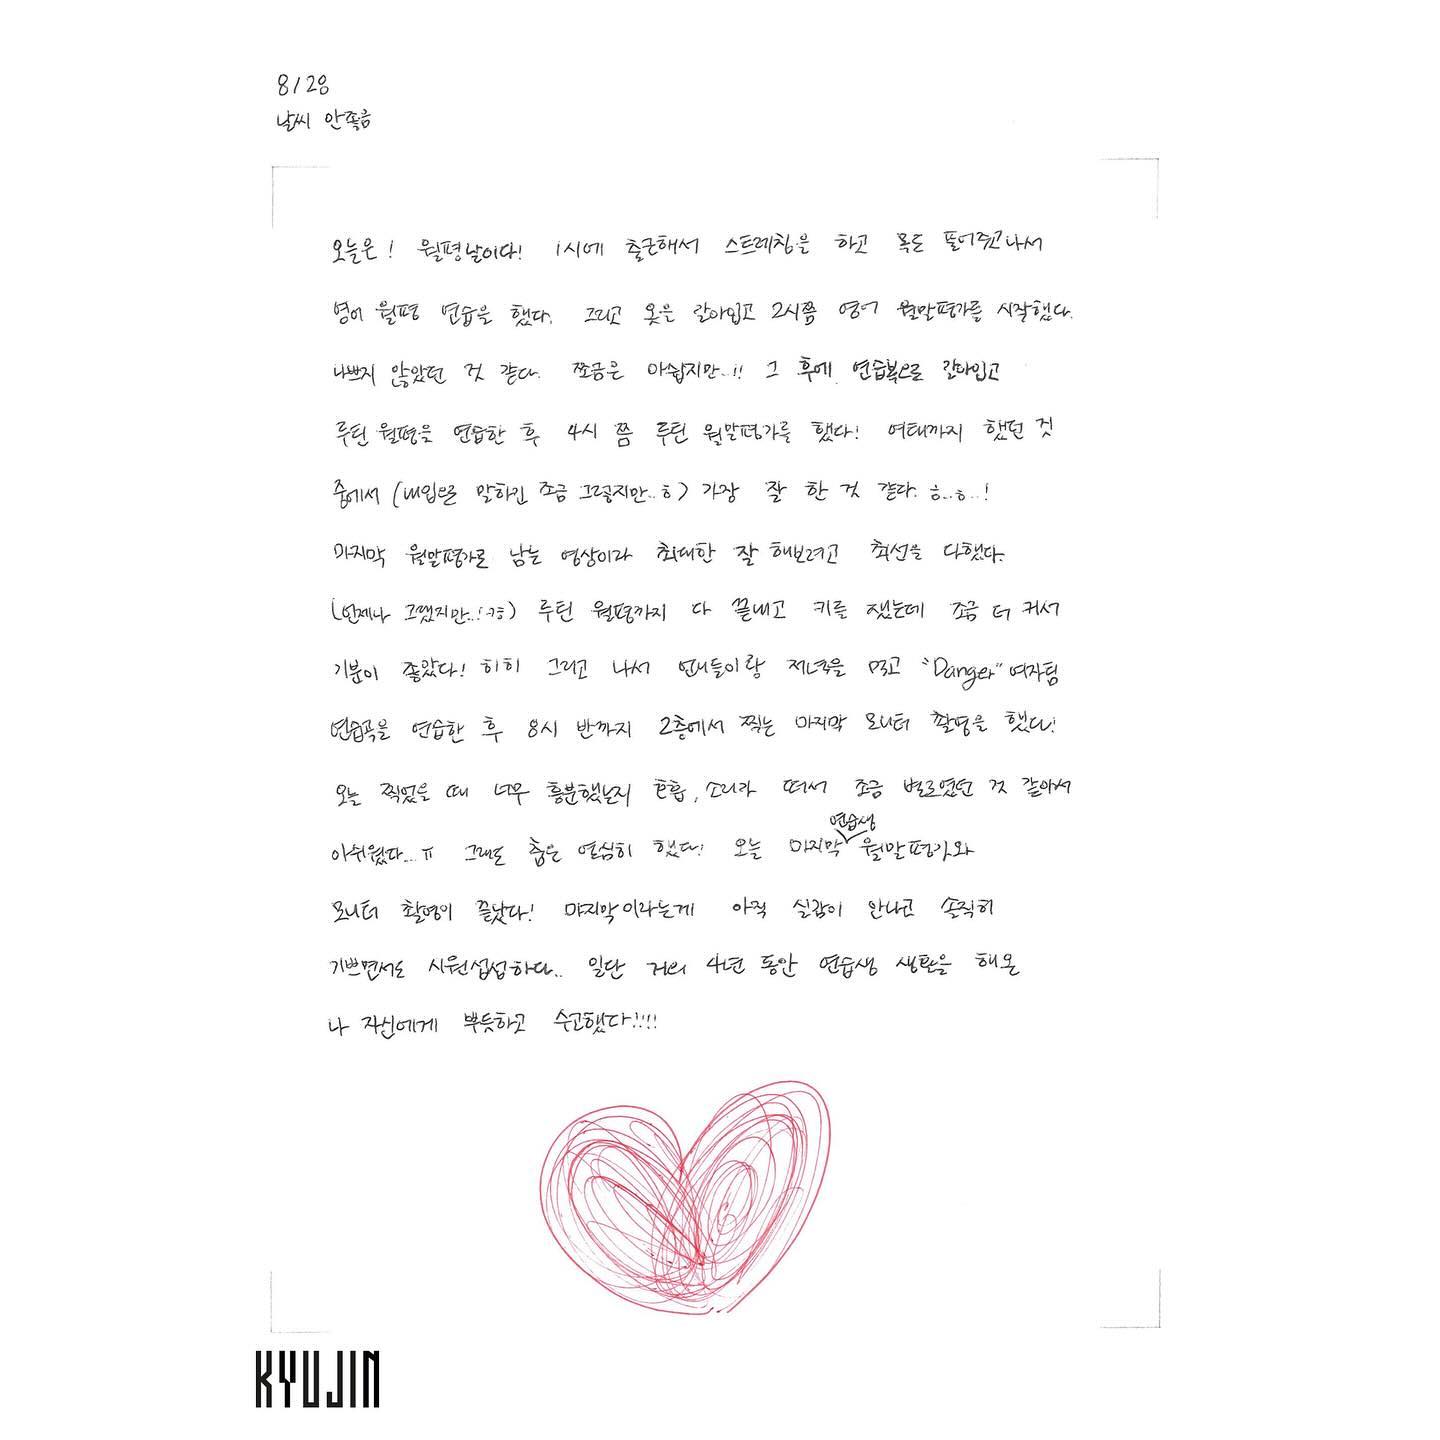 8/28
날씨 안좋음
오늘은! 월평날이다! 1시에 출근해서 스트레칭을 하고 목도 풀어주고나서
영어 월평 연습을 했다. 그리고 옷을 갈아입고 2시쯤 영어 월말평가를 시작했다.
나쁘지 않았던 것 같다. 쪼금은 아쉽지만..!! 그 후에 연습복으로 갈아입고
루틴 월평을 연습한 후 4시 쯤 루틴 월말평가를 했다! 여태까지 했던 것
중에서 (내입으로 말하긴 조금 그렇지만..ㅎ) 가장 잘 한 것 같다. ㅎ..ㅎ..!
마지막 월말평가로 남는 영상이라 최대한 잘 해보려고 최선을 다했다.
(언제나 그랬지만..!ㅋㅎ) 루틴 월평까지 다 끝내고 키를 쟀는데 조금 더 커서
기분이 좋았다! 히히 그리고 나서 언니들이랑 저녁을 먹고 "Danger" 여자팀
연습곡을 연습한 후 8시 반까지 2층에서 찍는 마지막 모니터 촬영을 했다!
오늘 찍었을 때 너무 흥분했는지 호흡, 소리가 떠서 조금 별로였던 것 같아서
아쉬웠다...ㅠ 그래도 춤은 열심히 했다! 오늘 마지막 연습생 월말평가와
모니터 촬영이 끝났다! 마지막이라는게 아직 실감이 안나고 솔직히
기쁘면서도 시원섭섭하다.. 일단 거의 4년 동안 연습생 생활을 해온
나 자신에게 뿌듯하고 수고했다!!!!
KYUJIN